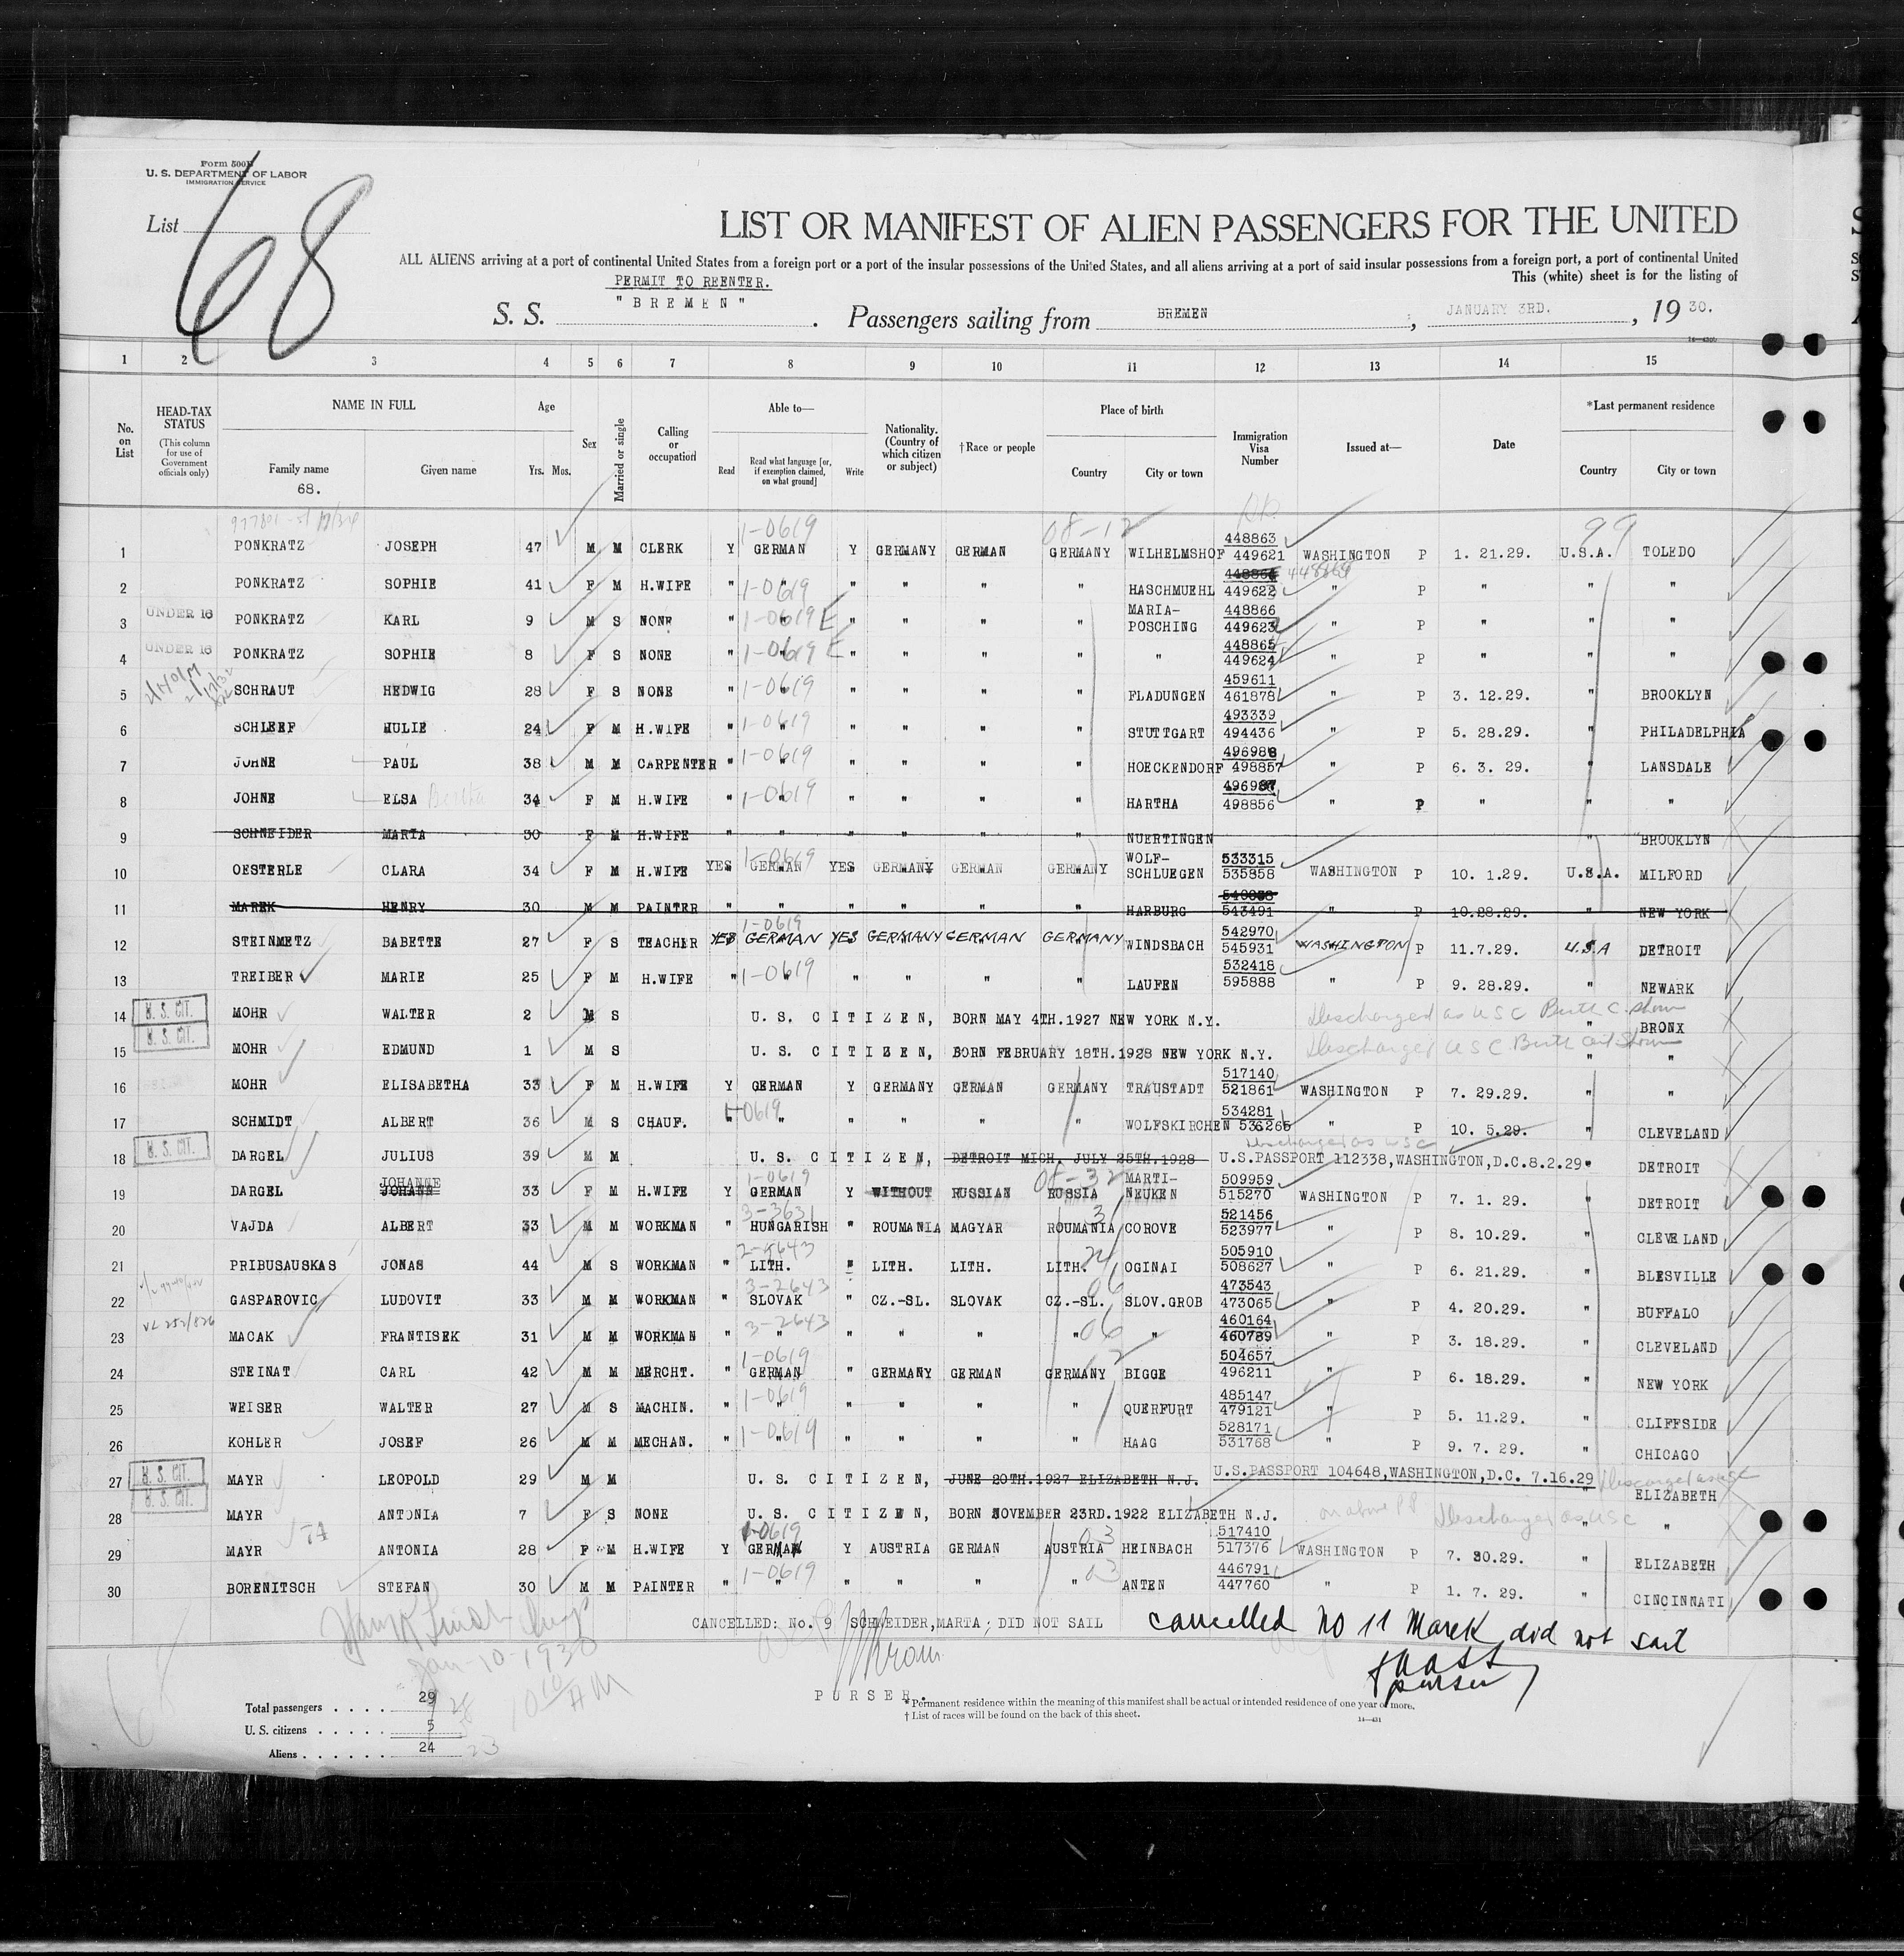 Form 500B
U. S. DEPARTMENT OF LABOR
IMMIGRATION SERVICE
List 68
LIST OR MANIFEST OF ALIEN PASSENGERS FOR THE UNITED
ALL ALIENS arriving at a port of continental United States from a foreign port or a port of the insular possessions of the United States, and all aliens arriving at a port of said insular possessions from a foreign port, a port of continental United
This (white) sheet is for the listing of
PERMIT TO REENTER.
S. S. "BREMEN". Passengers sailing from BREMEN, JANUARY 3RD., 1930.
1 2 3 4 5 6 7 8 9 10 11 12 13 14 15
No. on List
HEAD-TAX STATUS
(This column for use of Government officials only)
NAME IN FULL
Family name
68.
Given name
Age
Yrs. Mos.
Sex
Married or single
Calling or occupation
Able to—
Read
Read what language [or, if exemption claimed, on what ground]
Write
Nationality. (Country of which citizen or subject)
†Race or people
Place of birth
Country
City or town
Immigration Visa Number
Issued at—
Date
*Last permanent residence
Country
City or town
1-0619 08-12 99
1 PONKRATZ JOSEPH 47 M M CLERK Y GERMAN Y GERMANY GERMAN GERMANY WILHELMSHOF 448863 449621 WASHINGTON P 1. 21.29. U.S.A. TOLEDO
2 PONKRATZ SOPHIE 41 F M H.WIFE " 1-0619 " " " " HASCHMUEHL 449622 " P " " "
3 UNDER 16 PONKRATZ KARL 9 M S NONE " 1-0619 E " " " " MARIA-POSCHING 448866 449623 " P " " "
4 UNDER 16 PONKRATZ SOPHIE 8 F S NONE " 1-0619 E " " " " " 448865 449624 " P " " "
5 SCHRAUT HEDWIG 28 F S NONE " 1-0619 " " " " FLADUNGEN 459611 461878 " P 3. 12.29. " BROOKLYN
6 SCHLEEF HULIE 24 F M H.WIFE " 1-0619 " " " " STUTTGART 493339 494436 " P 5. 28.29. " PHILADELPHIA
7 JOHNE PAUL 38 M M CARPENTER " 1-0619 " " " " HOECKENDORF 496988 498857 " P 6. 3. 29. " LANSDALE
8 JOHNE ELSA Bertha 34 F M H.WIFE " 1-0619 " " " " HARTHA 496987 498856 " P " " "
9 SCHNEIDER MARTA 30 F M H.WIFE " " " " " " NUERTINGEN " BROOKLYN
10 OESTERLE CLARA 34 F M H.WIFE YES 1-0619 GERMAN YES GERMANY GERMAN GERMANY WOLF-SCHLUEGEN 533315 535858 WASHINGTON P 10. 1.29. U.S.A. MILFORD
11 MAREK HENRY 30 M M PAINTER " " " " " " HARBURG 543491 " P 10.28.29. " NEW YORK
12 STEINMETZ BABETTE 27 F S TEACHER YES 1-0619 GERMAN YES GERMANY GERMAN GERMANY WINDSBACH 542970 545931 WASHINGTON P 11.7.29. U.S.A DETROIT
13 TREIBER MARIE 25 F M H.WIFE " 1-0619 " " " " LAUFEN 532418 595888 " P 9. 28.29. " NEWARK
14 U. S. CIT. MOHR WALTER 2 M S U. S. CITIZEN, BORN MAY 4TH.1927 NEW YORK N.Y. Discharged as USC Birth C. shown " BRONX
15 U. S. CIT. MOHR EDMUND 1 M S U. S. CITIZEN, BORN FEBRUARY 18TH.1928 NEW YORK N.Y. Discharged USC Birth Cert Shown " "
16 MOHR ELISABETHA 33 F M H.WIFE Y GERMAN Y GERMANY GERMAN GERMANY TRAUSTADT 517140 521861 WASHINGTON P 7. 29.29. " "
17 SCHMIDT ALBERT 36 M S CHAUF. " 1-0619 " " " " " WOLFSKIRCHEN 534281 536265 " P 10. 5.29. " CLEVELAND
Discharged as USC
18 U. S. CIT. DARGEL JULIUS 39 M M U. S. CITIZEN, DETROIT MICH. JULY 25TH.1928 U.S.PASSPORT 112338,WASHINGTON,D.C.8.2.29. " DETROIT
19 DARGEL JOHANN JOHANNE 33 F M H.WIFE Y 1-0619 GERMAN Y WITHOUT RUSSIAN 08-32 RUSSIA MARTI-NEUKEN 509959 515270 WASHINGTON P 7. 1. 29. " DETROIT
20 VAJDA ALBERT 33 M M WORKMAN " 3-3631 HUNGARISH " ROUMANIA MAGYAR ROUMANIA COROVE 521456 523977 " P 8. 10.29. " CLEVELAND
21 PRIBUSAUSKAS JONAS 44 M S WORKMAN " LITH. " LITH. LITH. LITH. OGINAI 505910 508627 " P 6. 21.29. " BLESVILLE
22 GASPAROVIC LUDOVIT 33 M M WORKMAN " 3-2643 SLOVAK " CZ.-SL. SLOVAK 06 CZ.-SL. SLOV.GROB 473543 473065 " P 4. 20.29. " BUFFALO
23 MACAK FRANTISEK 31 M M WORKMAN " 3-2643 " " " " " 06 " 460164 460789 " P 3. 18.29. " CLEVELAND
24 STEINAT CARL 42 M M MERCHT. " 1-0619 GERMAN " GERMANY GERMAN GERMANY BIGGE 504657 496211 " P 6. 18.29. " NEW YORK
25 WEISER WALTER 27 M S MACHIN. " 1-0619 " " " " " QUERFURT 485147 479121 " P 5. 11.29. " CLIFFSIDE
26 KOHLER JOSEF 26 M M MECHAN. " 1-0619 " " " " " HAAG 528171 531768 " P 9. 7. 29. " CHICAGO
27 U. S. CIT. MAYR LEOPOLD 29 M M U. S. CITIZEN, JUNE 20TH.1927 ELIZABETH N.J. U.S.PASSPORT 104648,WASHINGTON,D.C. 7.16.29 " ELIZABETH
28 U. S. CIT. MAYR ANTONIA 7 F S NONE U. S. CITIZEN, BORN NOVEMBER 23RD.1922 ELIZABETH N.J. on above PP Discharged as USC " "
29 MAYR ANTONIA 28 F M H.WIFE Y 1-0619 GERMAN Y AUSTRIA GERMAN 03 AUSTRIA HEINBACH 517410 517376 WASHINGTON P 7. 30.29. " ELIZABETH
30 BORENITSCH STEFAN 30 M M PAINTER " 1-0619 " " " " " 03 ANTEN 446791 447760 " P 1. 7. 29. " CINCINNATI
CANCELLED: No. 9 SCHNEIDER,MARTA; DID NOT SAIL cancelled no 11 Marek did not sail
Jan-10-1930
purser
PURSER.
Total passengers . . . . 29
U. S. citizens . . . . . 5
Aliens . . . . . . 24 23
*Permanent residence within the meaning of this manifest shall be actual or intended residence of one year or more.
† List of races will be found on the back of this sheet.
14—431